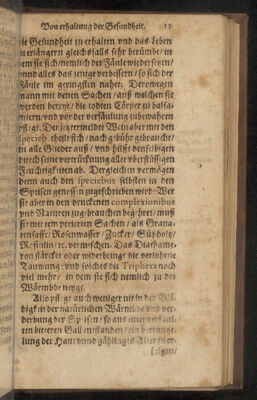 Von erhaltung der Gesundheit. 11
die Gesundheit zu erhalten und das Leben
verlängern gleichsfalls sehr berümbt/ in
dem sie sich/nemlich der Fäule widersetzen/
unnd alles das jenige verbessern/ so sich der
Fäule im geringsten nahet. Derowegen
mann mit denen Sachen/ auß wälchen sie
werden bereyt/ die todten Cörper zu balsa-
mieren/ und vor der versäulung zubewahren
pflegt. Der jetzermeldte Wein aber mit den
speciebus theilt sich/ nach gebühr gebrauche/
in alle Glieder auß/ und hilfft denselbigen
durch seine vertrücknung aller überflüssigen
Feuchtigkeiten ab. Dergleichen vermögen
denn auch den speciebus selbsten in den
Speisen genossen zugeschrieben wird: Wer
sie aber in den druckenen complexionibus
und Naturen zugebrauchen begehret/ muß
sie mit dem Sachen/ als Grana-
tensafft/ Rosenwasser/ Zucker/ Süßholz/
Rosinlin/ etc. vermischen. Das
von stärcket oder widerbringt die verlohrne
Taubung; und solches die Triphera noch
viel mehr/ in dem sie sich nemlich zu der
Wärmbde neygt.
Also pflegt auch weniger nit in der Blö-
digkeit der natürlichen Wärmbde und ver-
derbung der Speisen/ so auß einer
bitteren Gall entstanden/ ein
lung der Haut unnd gählings Alter
folgen/